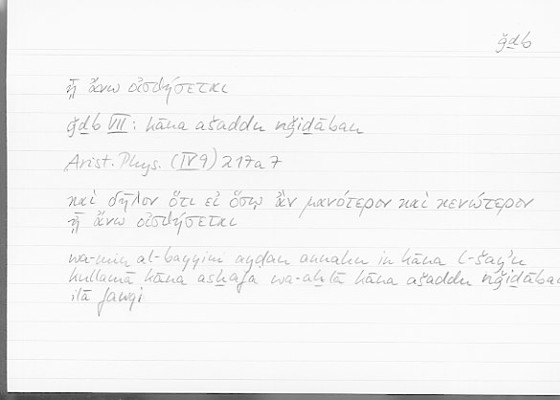 ǧḏb
ᾗ ἄνω οἰσθήσεται
ǧḏb VII: kāna ašaddu nǧiḏāban
Arist. Phys. (IV 9) 217a7
καὶ δῆλον ὅτι εἰ ὅσῳ ἂν μανότερον καὶ κενώτερον
ᾗ ἄνω οἰσθήσεται
wa-min al-bayyini ayḍan annahu in kāna l-šayʾu
kullamā kāna asḫafa wa-aḫlā kāna ašaddu nǧiḏāban
ilā fawqi